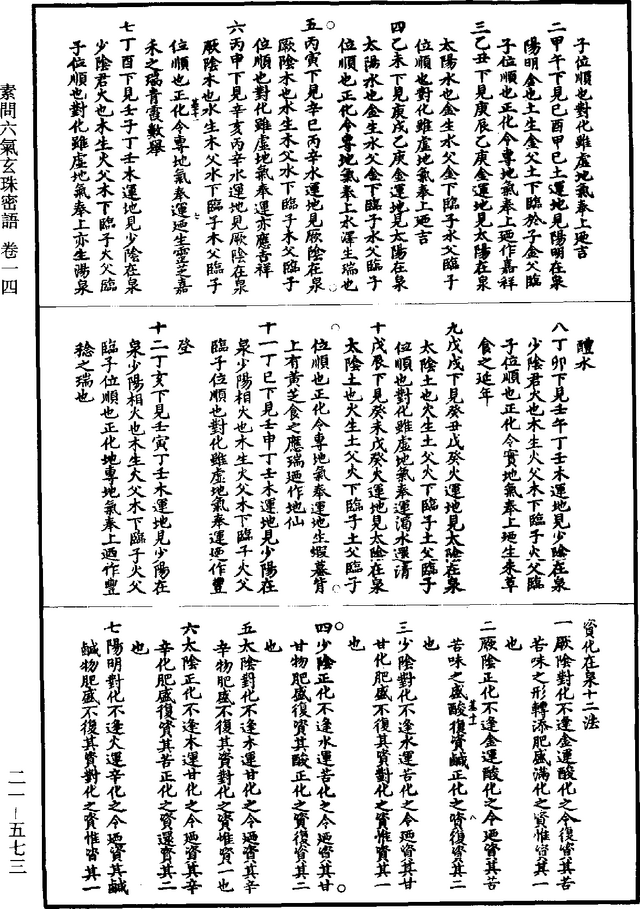 素問六氣玄珠密語 卷一四
子位順也對化雖虛地氣奉上迺吉
二甲午下見己酉甲己土運地見陽明在泉
陽明金也土生金父土下臨於子金父臨
子位順也正化令專地氣奉上迺作嘉祥
三乙丑下見庚辰乙庚金運地見太陽在泉
太陽水也金生水父金下臨子水父臨子
位順也對化雖虛地氣奉上迺吉
四乙未下見庚戌乙庚金運地見太陽在泉
太陽水也金生水父金下臨子水父臨子
位順也正化令專地氣奉上水澤生瑞也
五丙寅下見辛巳丙辛水運地見厥陰在泉
厥陰木也水生木父水下臨子木父臨子
位順也對化雖虛地氣奉運亦應吉祥
六丙申下見辛亥丙辛水運地見厥陰在泉
厥陰木也水生木父水下臨子木父臨子
位順也正化令專地氣奉運迺生靈芝嘉
禾之瑞青霞數舉
七丁酉下見壬子丁壬木運地見少陰在泉
少陰君火也木生火父木下臨子火父臨
子位順也對化雖虛地氣奉上亦生湯泉
醴水
八丁卯下見壬午丁壬木運地見少陰在泉
少陰君火也木生火父木下臨子火父臨
子位順也正化令實地氣奉上迺生朱草
食之延年
九戊戌下見癸丑戊癸火運地見太陰在泉
太陰土也火生土父火下臨子土父臨子
位順也對化雖虛地氣奉運濁水還清
十戊辰下見癸未戊癸火運地見太陰在泉
太陰土也火生土父火下臨子土父臨子
位順也正化令專地氣奉運地生蝦蟇背
上有黃芝食之應瑞迺作地仙
十一丁巳下見壬申丁壬木運地見少陽在
泉少陽相火也木生火父木下臨子火父
臨子位順也對化雖虛地氣奉運迺作豐
登
十二丁亥下見壬寅丁壬木運地見少陽在
泉少陽相火也木生火父木下臨子火父
臨子位順也正化地專地氣奉上迺作豐
稔之瑞也
資化在泉十二法
一厥陰對化不逢金運酸化之令復資其苦
苦味之形轉添肥盛滿化之資惟資其一
也
二厥陰正化不逢金運酸化之令迺資其苦
苦味之盛酸復資鹹正化之資復資其二
也
三少陰對化不逢水運苦化之令迺資其甘
甘化肥盛不復其資對化之資惟資其一
也
四少陰正化不逢水運苦化之令迺資其甘
甘物肥盛復資其酸正化之資復資其二
也
五太陰對化不逢木運甘化之令迺資其辛
辛物肥盛不復其資對化之資惟資一也
六太陰正化不逢木運甘化之令迺資其辛
辛化肥盛復資其苦正化之資還資其二
也
七陽明對化不逢火運辛化之令迺資其鹹
鹹物肥盛不復其資對化之資惟資其一
二一—五七三